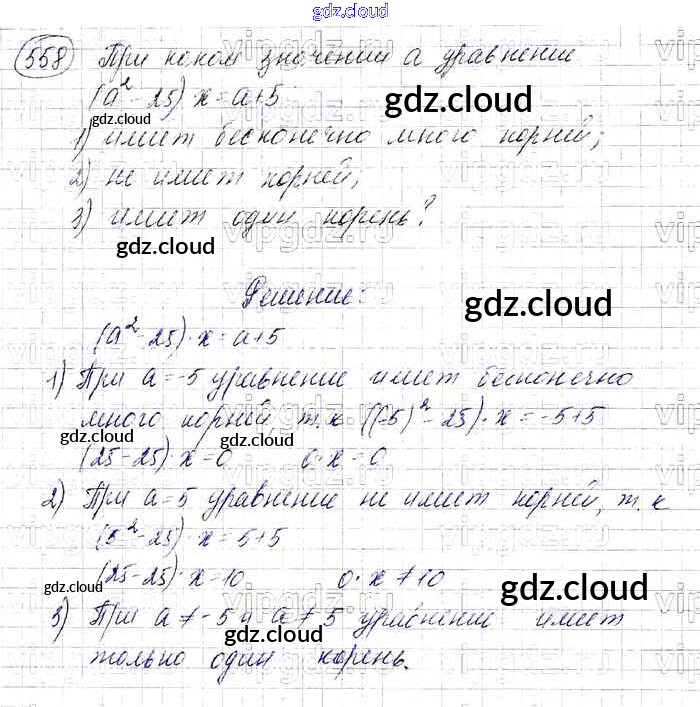 gdz.cloud
558 При каком значении a уравнение
(a² - 25) · x = a + 5
gdz.cloud
gdz.cloud
1) имеет бесконечно много корней;
2) не имеет корней;
3) имеет один корень?
gdz.cloud
gdz.cloud
Решение:
gdz.cloud
(a² - 25) · x = a + 5
1) При a = -5 уравнение имеет бесконечно
много корней, т.к ((-5)² - 25) · x = -5 + 5
gdz.cloud
gdz.cloud
(25 - 25) · x = 0 0 · x = 0
2) При a = 5 уравнение не имеет корней, т.к
(5² - 25) · x = 5 + 5
(25 - 25) · x = 10 0 · x ≠ 10
gdz.cloud
gdz.cloud
3) При a ≠ -5 и a ≠ 5 уравнение имеет
только один корень.
gdz.cloud